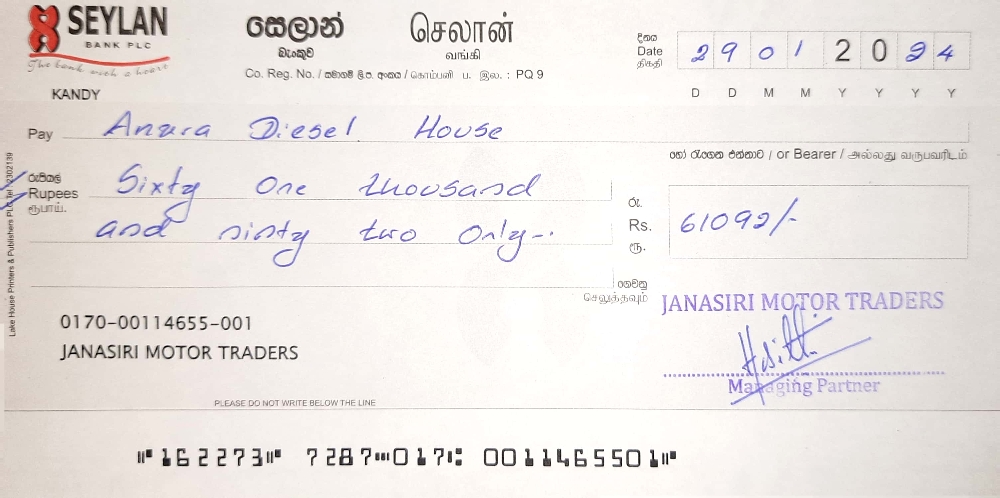 SEYLAN
BANK PLC
The bank with a heart
සෙලාන්
බැංකුව
செலான்
வங்கி
Co. Reg. No. / සමාගම් ලි.ප. අංකය / கொம்பனி ப. இல. : PQ 9
දිනය
Date
திகதி
2 9 0 1 2 0 2 4
D D M M Y Y Y Y
KANDY
Pay Anura Diesel House
හෝ රැගෙන එන්නාට / or Bearer / அல்லது வருபவரிடம்
රුපියල්
Rupees
ரூபாய்.
Sixty One thousand
and ninty two Only-.
රු.
Rs.
ரூ.
61092/-
ගෙවනු
செலுத்தவும்
Lake House Printers & Publishers PLC Tel 2302139
0170-00114655-001
JANASIRI MOTOR TRADERS
JANASIRI MOTOR TRADERS
Managing Partner
PLEASE DO NOT WRITE BELOW THE LINE
⑈162273⑈ 7287⑉017⑆ 0011465501⑈